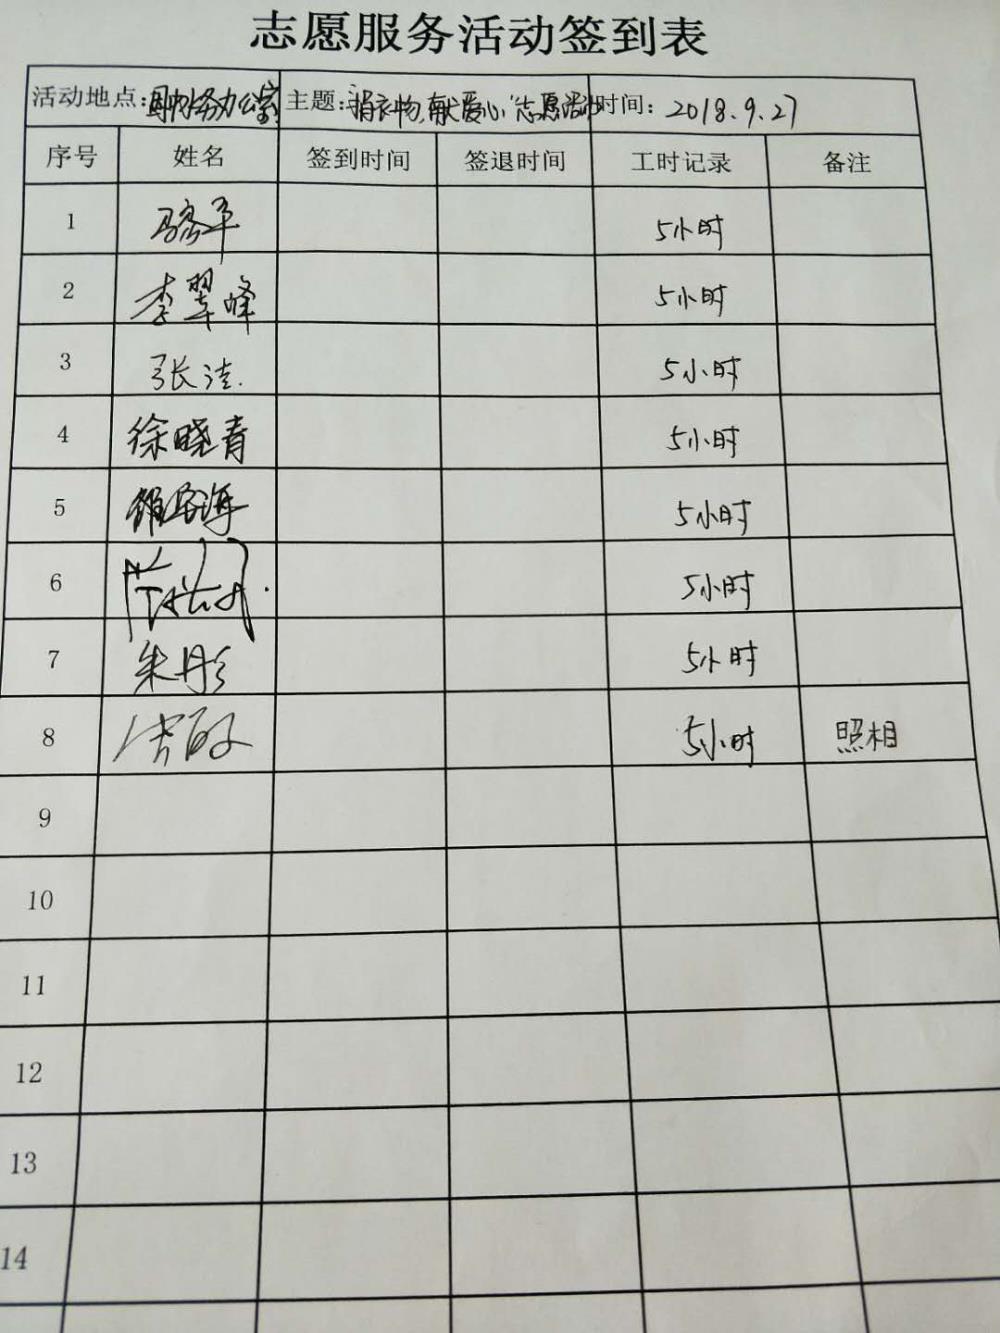 志愿服务活动签到表
活动地点: 办公室 主题: 捐衣物,献爱心"志愿活动 时间: 2018.9.27
序号 姓名 签到时间 签退时间 工时记录 备注
1 5小时
2 李翠峰 5小时
3 张洁 5小时
4 徐晓青 5小时
5 5小时
6 5小时
7 朱彤 5小时
8 5小时 照相
9
10
11
12
13
14